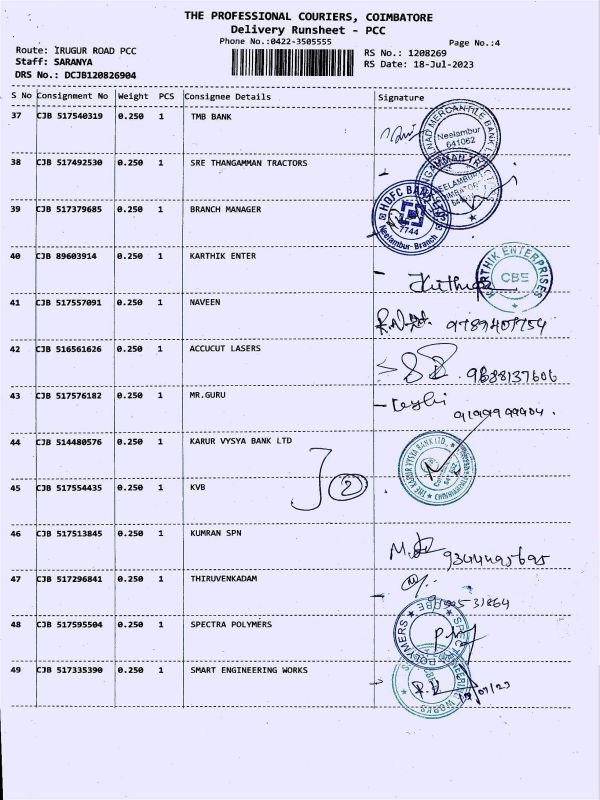 THE PROFESSIONAL COURIERS, COIMBATORE
Delivery Runsheet - PCC
Phone No.:0422-3505555
Page No.:4
Route: IRUGUR ROAD PCC
RS No.: 1208269
Staff: SARANYA
RS Date: 18-Jul-2023
DRS No.: DCJB120826904
S No Consignment No Weight PCS Consignee Details Signature
37 CJB 517540319 0.250 1 TMB BANK
Neelambur
641062
38 CJB 517492530 0.250 1 SRE THANGAMMAN TRACTORS
39 CJB 517379685 0.250 1 BRANCH MANAGER
HDFC BANK
7744
Neelambur-Branch
40 CJB 89603914 0.250 1 KARTHIK ENTER
KARTHIK ENTERPRISES
CBE
41 CJB 517557091 0.250 1 NAVEEN
42 CJB 516561626 0.250 1 ACCUCUT LASERS
9688137606
43 CJB 517576182 0.250 1 MR.GURU
44 CJB 514480576 0.250 1 KARUR VYSYA BANK LTD
THE KARUR VYSYA BANK LTD.
45 CJB 517554435 0.250 1 KVB
2
46 CJB 517513845 0.250 1 KUMRAN SPN
47 CJB 517296841 0.250 1 THIRUVENKADAM
48 CJB 517595504 0.250 1 SPECTRA POLYMERS
SPECTRA POLYMERS
49 CJB 517335390 0.250 1 SMART ENGINEERING WORKS